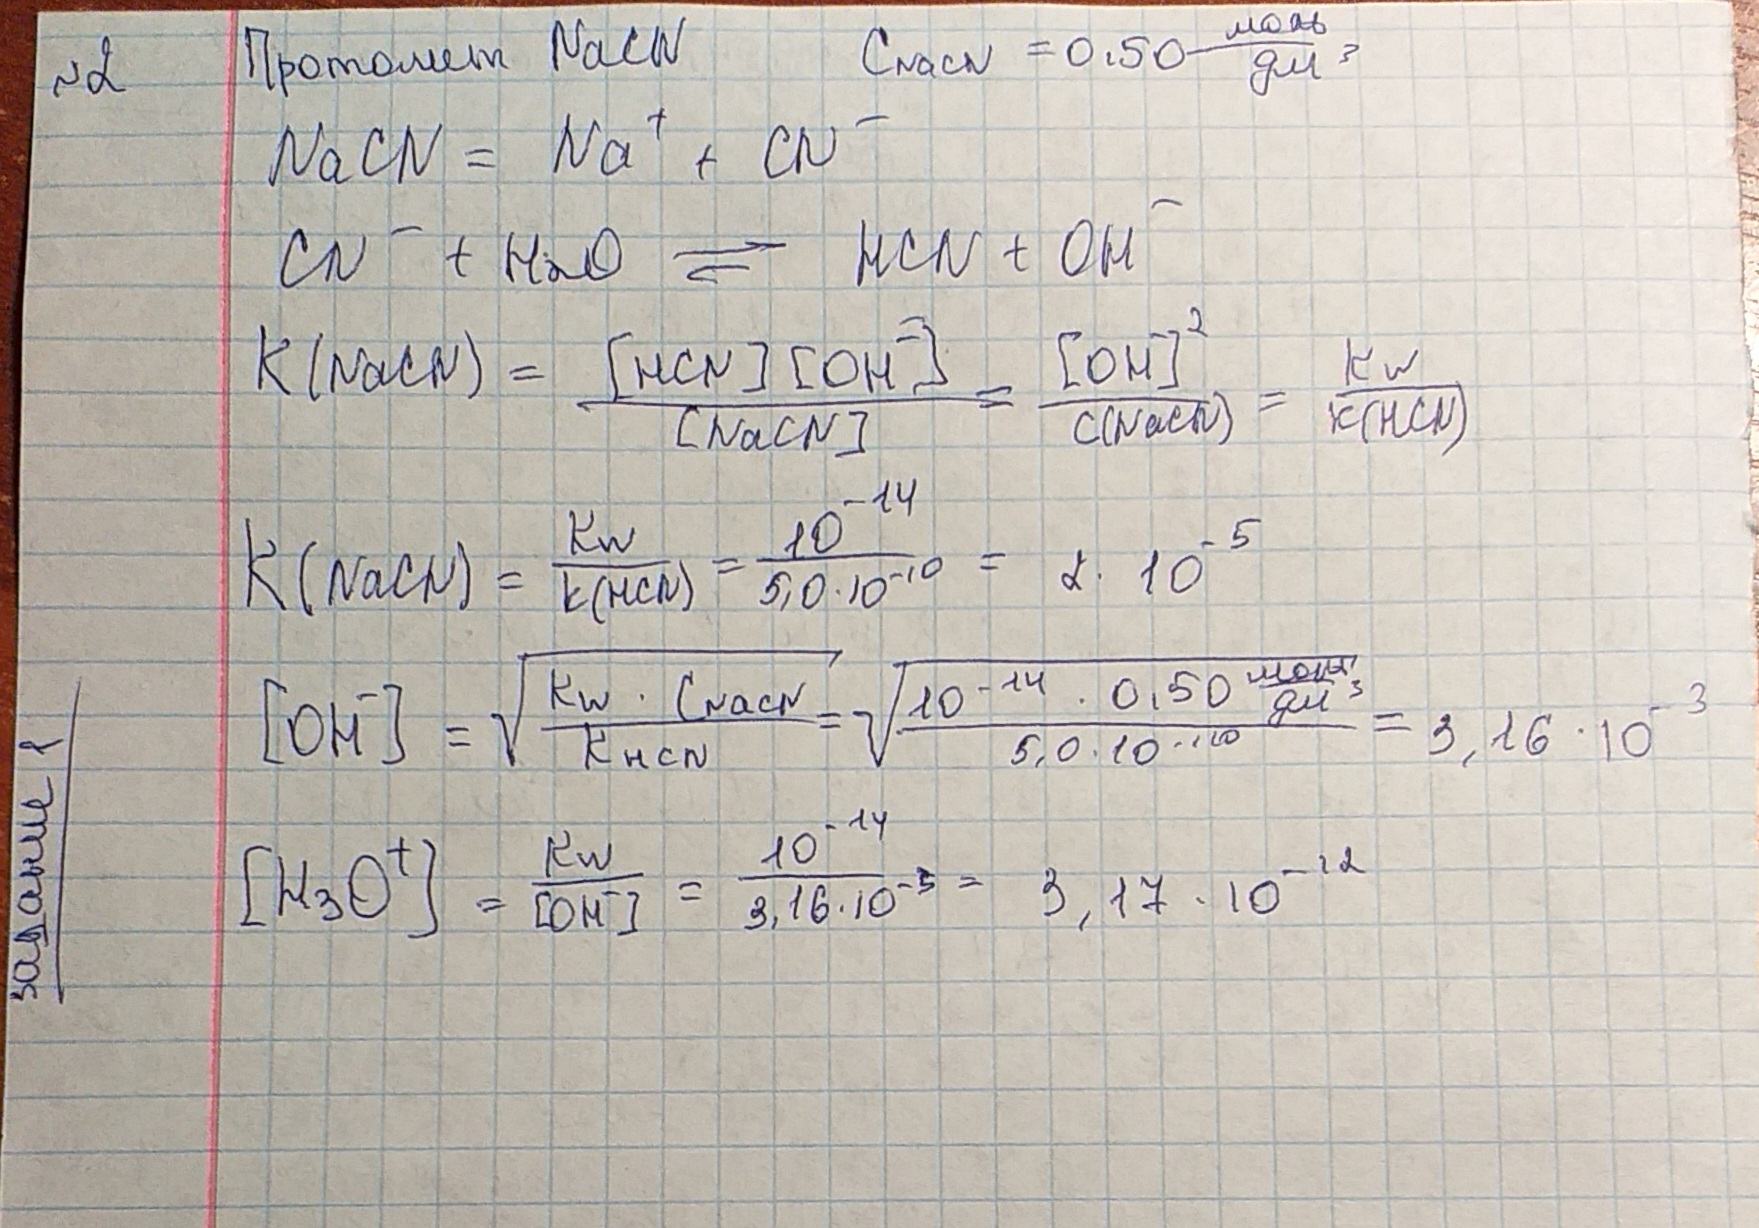 №2 Протолит NaCN C NaCN = 0.50 моль/дм³
NaCN = Na⁺ + CN⁻
CN⁻ + H₂O ⇌ HCN + OH⁻
K(NaCN) = [HCN][OH⁻]/[NaCN] = [OH⁻]²/C(NaCN) = Kw/K(HCN)
K(NaCN) = Kw/K(HCN) = 10⁻¹⁴/5,0·10⁻¹⁰ = 2·10⁻⁵
[OH⁻] = √(Kw · C NaCN/K HCN) = √(10⁻¹⁴ · 0,50 моль/дм³/5,0·10⁻¹⁰) = 3,16·10⁻³
[H₃O⁺] = Kw/[OH⁻] = 10⁻¹⁴/3,16·10⁻³ = 3,17·10⁻¹²
задание 1